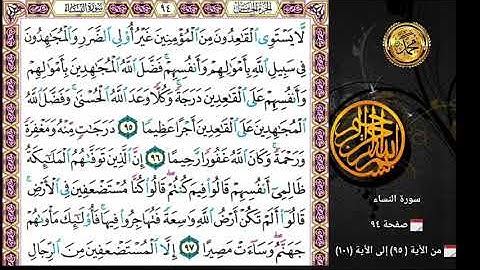 الجزء الخامس
٩٤
سورة النساء
لَّا يَسْتَوِى ٱلْقَٰعِدُونَ مِنَ ٱلْمُؤْمِنِينَ غَيْرُ أُو۟لِى ٱلضَّرَرِ وَٱلْمُجَٰهِدُونَ
فِى سَبِيلِ ٱللَّهِ بِأَمْوَٰلِهِمْ وَأَنفُسِهِمْ ۚ فَضَّلَ ٱللَّهُ ٱلْمُجَٰهِدِينَ بِأَمْوَٰلِهِمْ
وَأَنفُسِهِمْ عَلَى ٱلْقَٰعِدِينَ دَرَجَةً ۚ وَكُلًّا وَعَدَ ٱللَّهُ ٱلْحُسْنَىٰ ۚ وَفَضَّلَ ٱللَّهُ
ٱلْمُجَٰهِدِينَ عَلَى ٱلْقَٰعِدِينَ أَجْرًا عَظِيمًا ٩٥ دَرَجَٰتٍ مِّنْهُ وَمَغْفِرَةً
وَرَحْمَةً ۚ وَكَانَ ٱللَّهُ غَفُورًا رَّحِيمًا ٩٦ إِنَّ ٱلَّذِينَ تَوَفَّىٰهُمُ ٱلْمَلَٰٓئِكَةُ
ظَالِمِىٓ أَنفُسِهِمْ قَالُوا۟ فِيمَ كُنتُمْ ۖ قَالُوا۟ كُنَّا مُسْتَضْعَفِينَ فِى ٱلْأَرْضِ ۚ
قَالُوٓا۟ أَلَمْ تَكُنْ أَرْضُ ٱللَّهِ وَٰسِعَةً فَتُهَاجِرُوا۟ فِيهَا ۚ فَأُو۟لَٰٓئِكَ مَأْوَىٰهُمْ
جَهَنَّمُ ۖ وَسَآءَتْ مَصِيرًا ٩٧ إِلَّا ٱلْمُسْتَضْعَفِينَ مِنَ ٱلرِّجَالِ
محمد
بسم الله الرحمن الرحيم
سورة النساء
صفحة ٩٤
من الأية (٩٥) إلى الأية (١٠١)